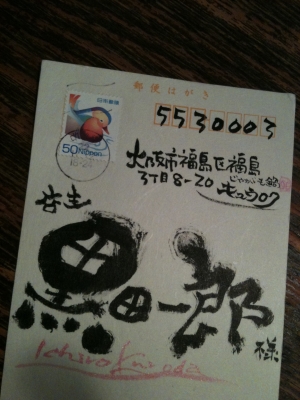 郵便はがき
日本郵便
50 NIPPON
5530003
大阪市福島区福島
3丁目8-20
じゃがいも鍋
キュウロク
店主
黒田一郎様
Ichiro Kuroda